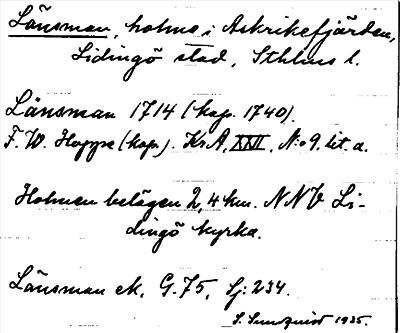 Länsman, holme i Askrikefjärden,
Lidingö stad, Sthlms l.
Länsman 1714 (kop. 1740).
F. W. Hoppe (kop). Kr A, XXII, N:o 9. lit. a.
Holmen belägen 2,4 km. NNV Li-
dingö kyrka.
Länsman ek. G. 75, Lj: 234.
S. Sundquist 1935.